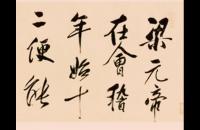 梁元帝
在會稽
年始十
二便能